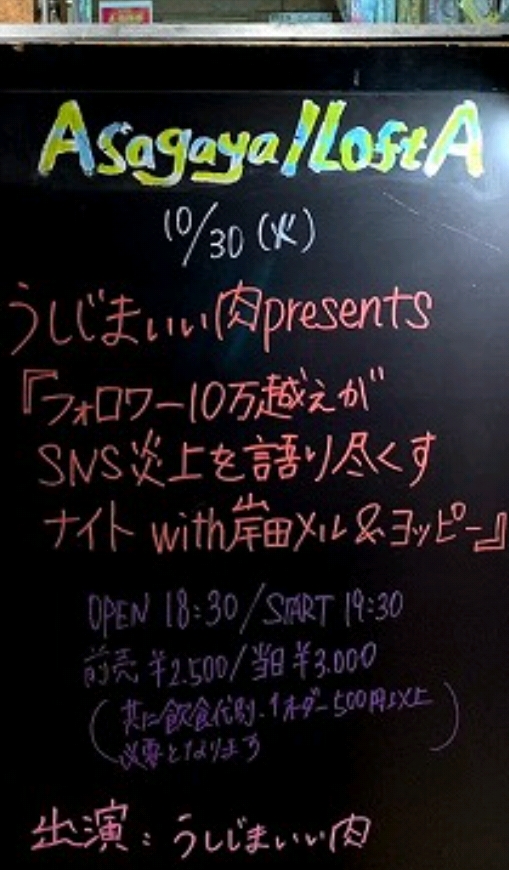 Asagaya/LoftA
10/30(火)
うしじまいい肉presents
『フォロワー10万越えが
SNS炎上を語り尽くす
ナイト with岸田メル&ヨッピー』
OPEN 18:30/START 19:30
前売 ¥2.500/当日 ¥3.000
(共に飲食代別.1オーダー500円以上
必要となります)
出演:うしじまいい肉